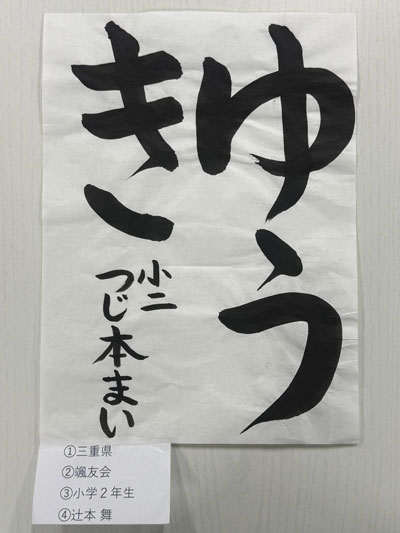 ゆう
き
小二
つじ本まい
①三重県
②颯友会
③小学２年生
④辻本 舞